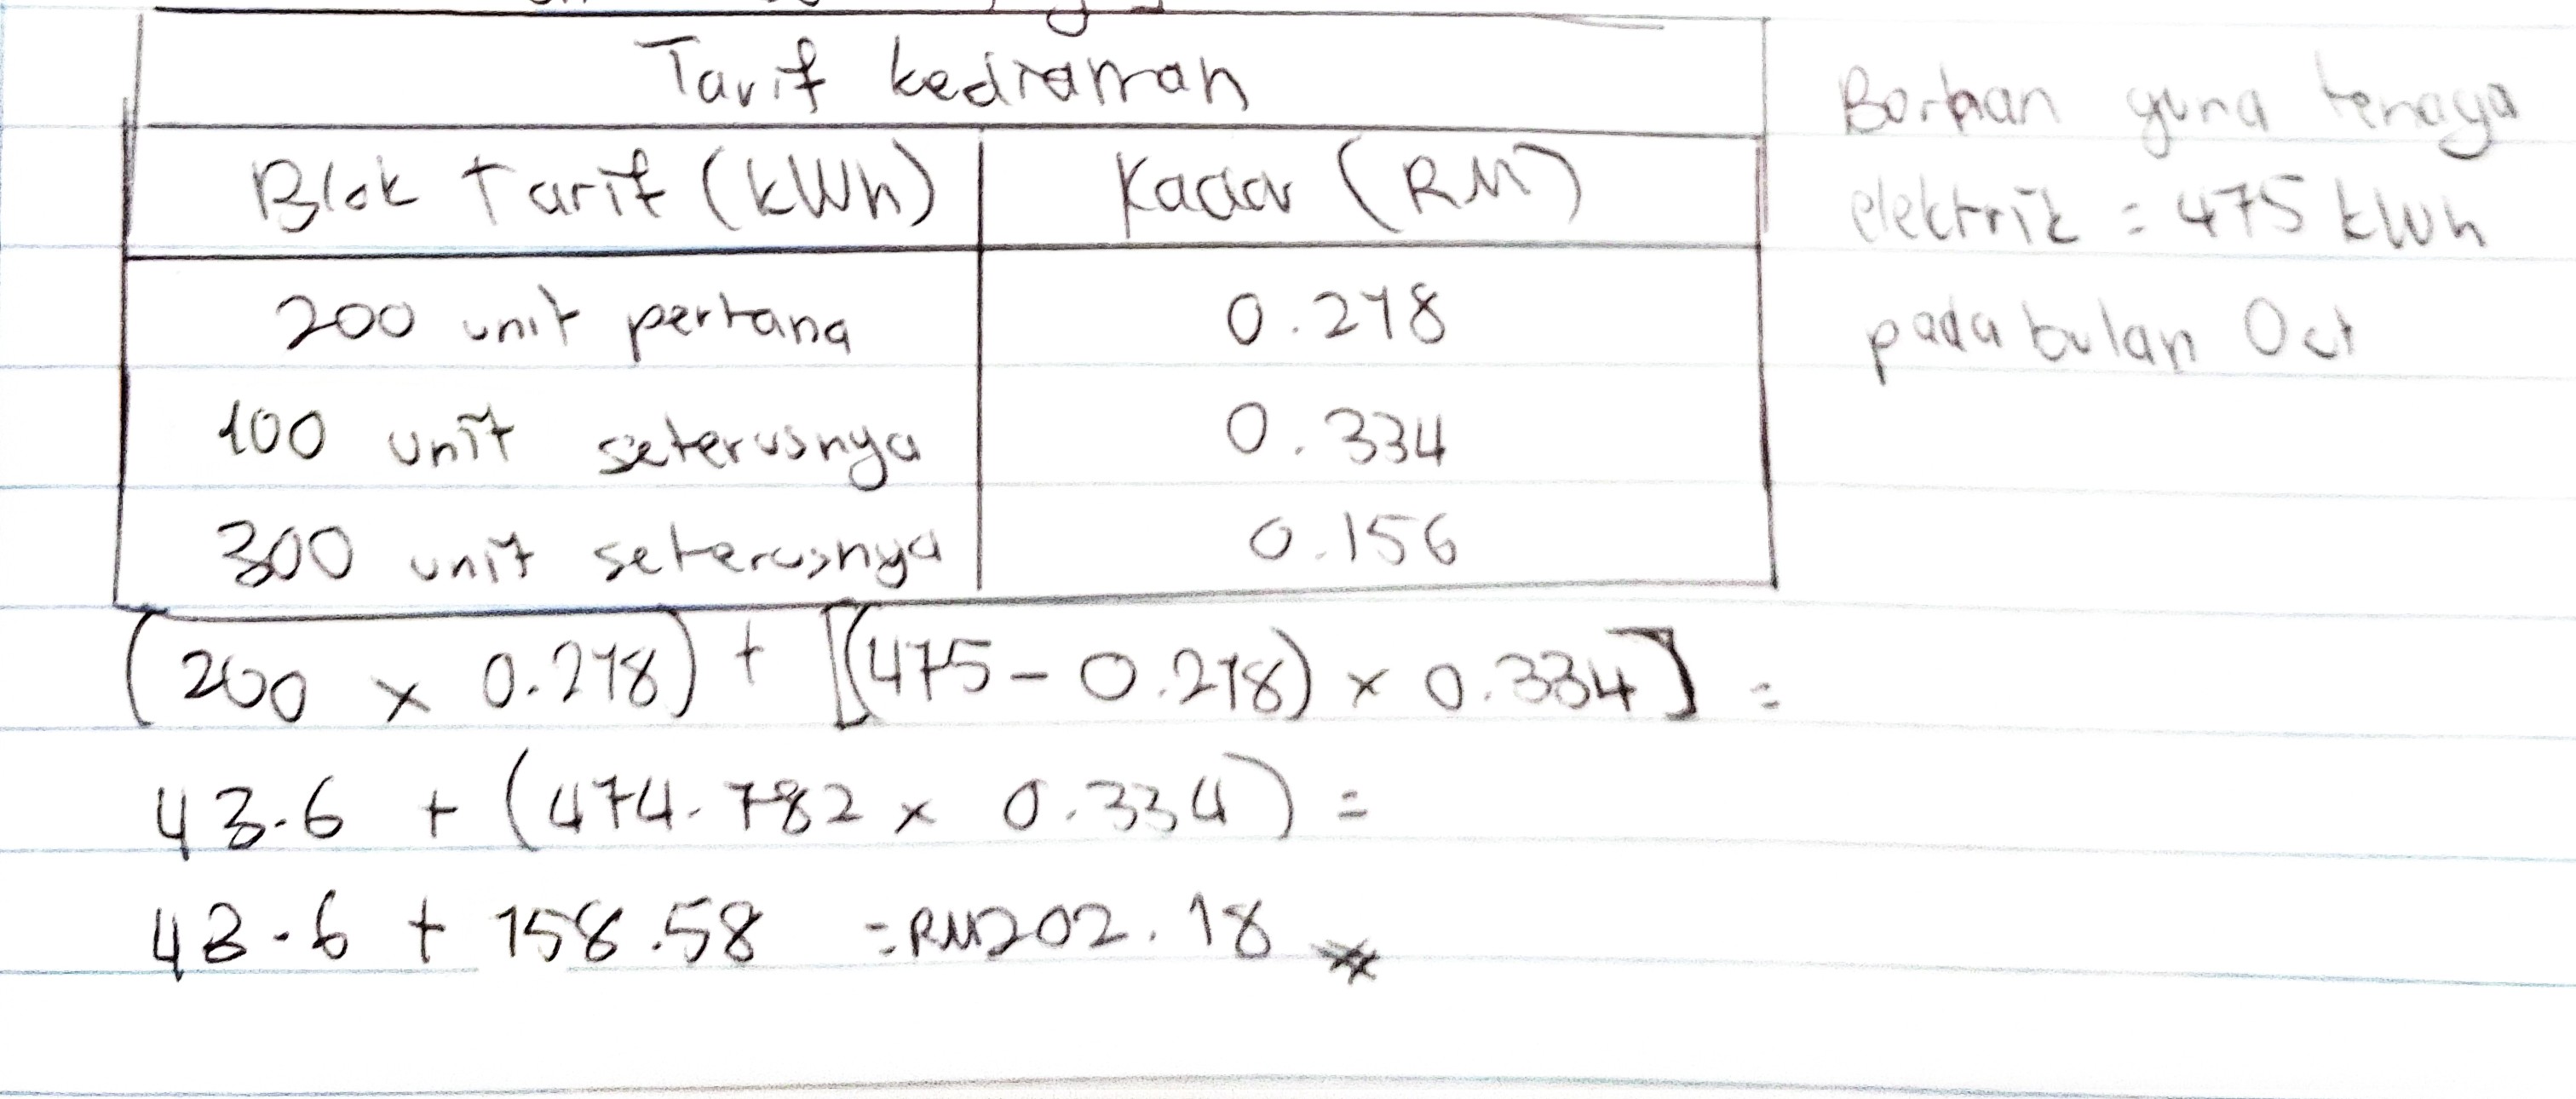 Tarif kediaman
Blok Tarif (kWh) Kadar (RM)
200 unit pertama 0.218
100 unit seterusnya 0.334
300 unit seterusnya 0.156
Borhan guna tenaga
elektrik = 475 kWh
pada bulan Oct
(200 × 0.218) + [(475 - 0.218) × 0.334] =
43.6 + (474.782 × 0.334) =
43.6 + 158.58 = RM202.18